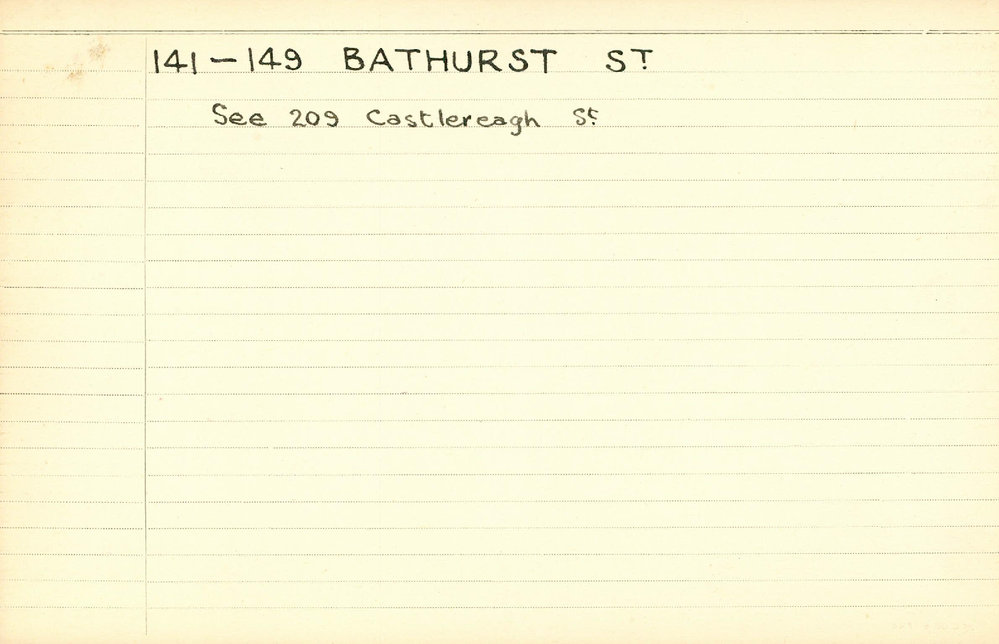 141 - 149 BATHURST ST
See 209 Castlereagh St